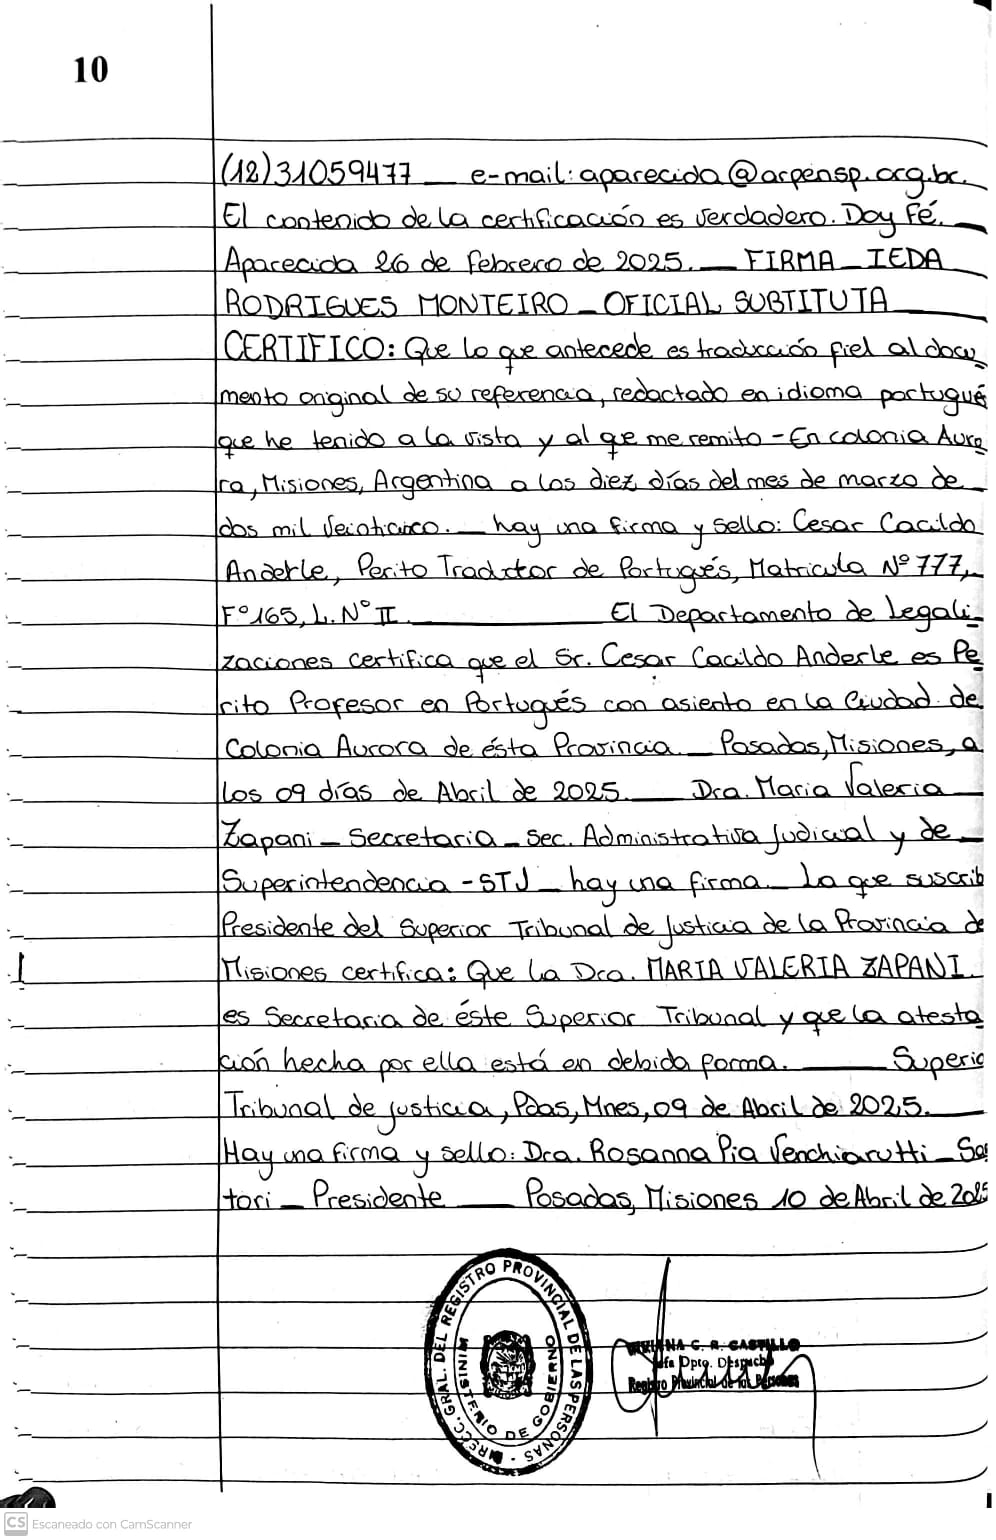 10
(12)31059477 __ e-mail: aparecida@arpensp.org.br.
El contenido de la certificación es verdadero. Doy Fé. __
Aparecida 26 de febrero de 2025. __ FIRMA _ IEDA
RODRIGUES MONTEIRO _ OFICIAL SUBTITUTA
CERTIFICO: Que lo que antecede es traducción fiel al docu
mento original de su referencia, redactado en idioma portugué
que he tenido a la vista y al que me remito - En colonia Auro
ra, Misiones, Argentina a los diez días del mes de marzo de
dos mil veinticinco. __ hay una firma y sello: Cesar Cacildo
Anderle, Perito Traductor de Portugués, Matricula Nº 777,
Fº 165, L. Nº II. ______ El Departamento de Legali_
zaciones certifica que el Sr. Cesar Cacildo Anderle es Pe
rito Profesor en Portugués con asiento en la Ciudad de
Colonia Aurora de ésta Provincia. _ Posadas, Misiones, a
los 09 días de Abril de 2025. __ Dra. Maria Valeria
Zapani _ Secretaria _ Sec. Administrativa Judicial y de
Superintendencia - STJ _ hay una firma. _ La que suscrib
Presidente del Superior Tribunal de Justicia de la Provincia de
Misiones certifica: Que la Dra. MARIA VALERIA ZAPANI
es Secretaria de éste Superior Tribunal y que la atesta
ción hecha por ella está en debida forma. ____ Superio
Tribunal de justicia, Pdas, Mnes, 09 de Abril de 2025. __
Hay una firma y sello: Dra. Rosanna Pia Venchiarutti _ Sar
tori _ Presidente __ Posadas, Misiones 10 de Abril de 2025
DIRECC. GRAL. DEL REGISTRO PROVINCIAL DE LAS PERSONAS
MINISTERIO DE GOBIERNO
C. R. CASTILLO
Jefa Dpto. Despacho
Registro Provincial de las Personas
CS Escaneado con CamScanner